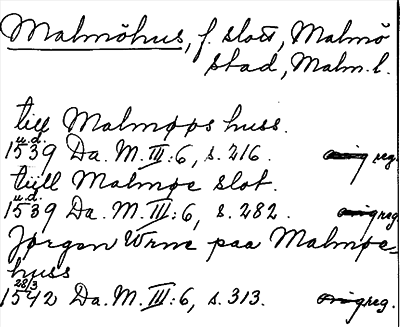 Malmöhus, f. slott, Malmö
stad, Malm. l.
till Malmøøs huss.
u.d.
1539 Da. M. III:6, s. 216. reg.
tiill Malmøe slot.
u.d.
1539 Da. M. III:6, s. 282. reg.
Jørgen Wrne paa Malmøe-
huss
28/3
1542 Da. M. III:6, s. 313. reg.